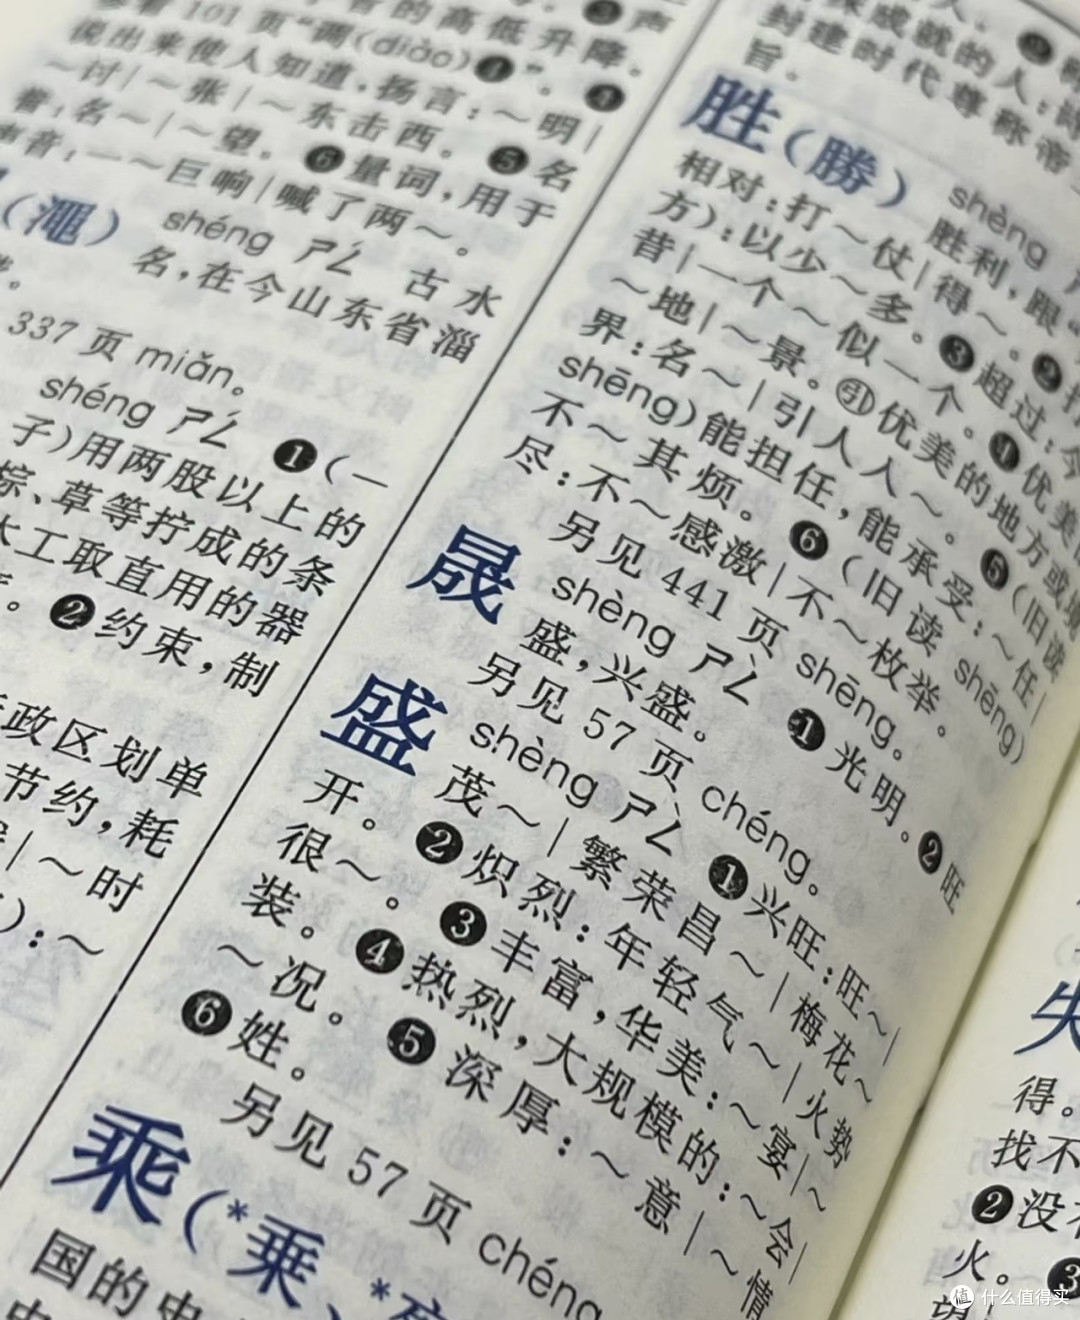 101 页“调(diào)❹”。❹
说出来使人知道，扬言：～明|
～讨|～张|～东击西。❺名
誉：名～|～望。❻量词，用于
声音：一～巨响|喊了两～。
(渑) shéng ㄕㄥˊ 古水
名，在今山东省淄
337 页 miǎn。
shéng ㄕㄥˊ ❶(一
子)用两股以上的
棕、草等拧成的条
木工取直用的器
❷约束，制
政区划单
节约，耗
|～时
)：～
的人：
封建时代尊称帝
旨。
胜(勝) shèng
胜利，跟“
相对：打～仗|得～。❷打
方)：以少～多。❸超过：今
昔|一个～似一个。❹优美
～地|～景。㊁优美的地方或
界：名～|引人入～。❺(旧读
shēng)能担任，能承受：～任|
不～其烦。❻(旧读 shēng)
尽：不～感激|不～枚举。
另见 441 页 shēng。
晟 shèng ㄕㄥˋ ❶光明。❷旺
盛，兴盛。
另见 57 页 chéng。
盛 shèng ㄕㄥˋ ❶兴旺：旺～|
茂～|繁荣昌～|梅花～
开。❷炽烈：年轻气～|火势
很～。❸丰富，华美：～宴|～
装。❹热烈，大规模的：～会|
～况。❺深厚：～意|～情
❻姓。
另见 57 页 chéng
乘(*乗、*
国的史
失
得。
找不
❷没
火。❸
望|
值 什么值得买